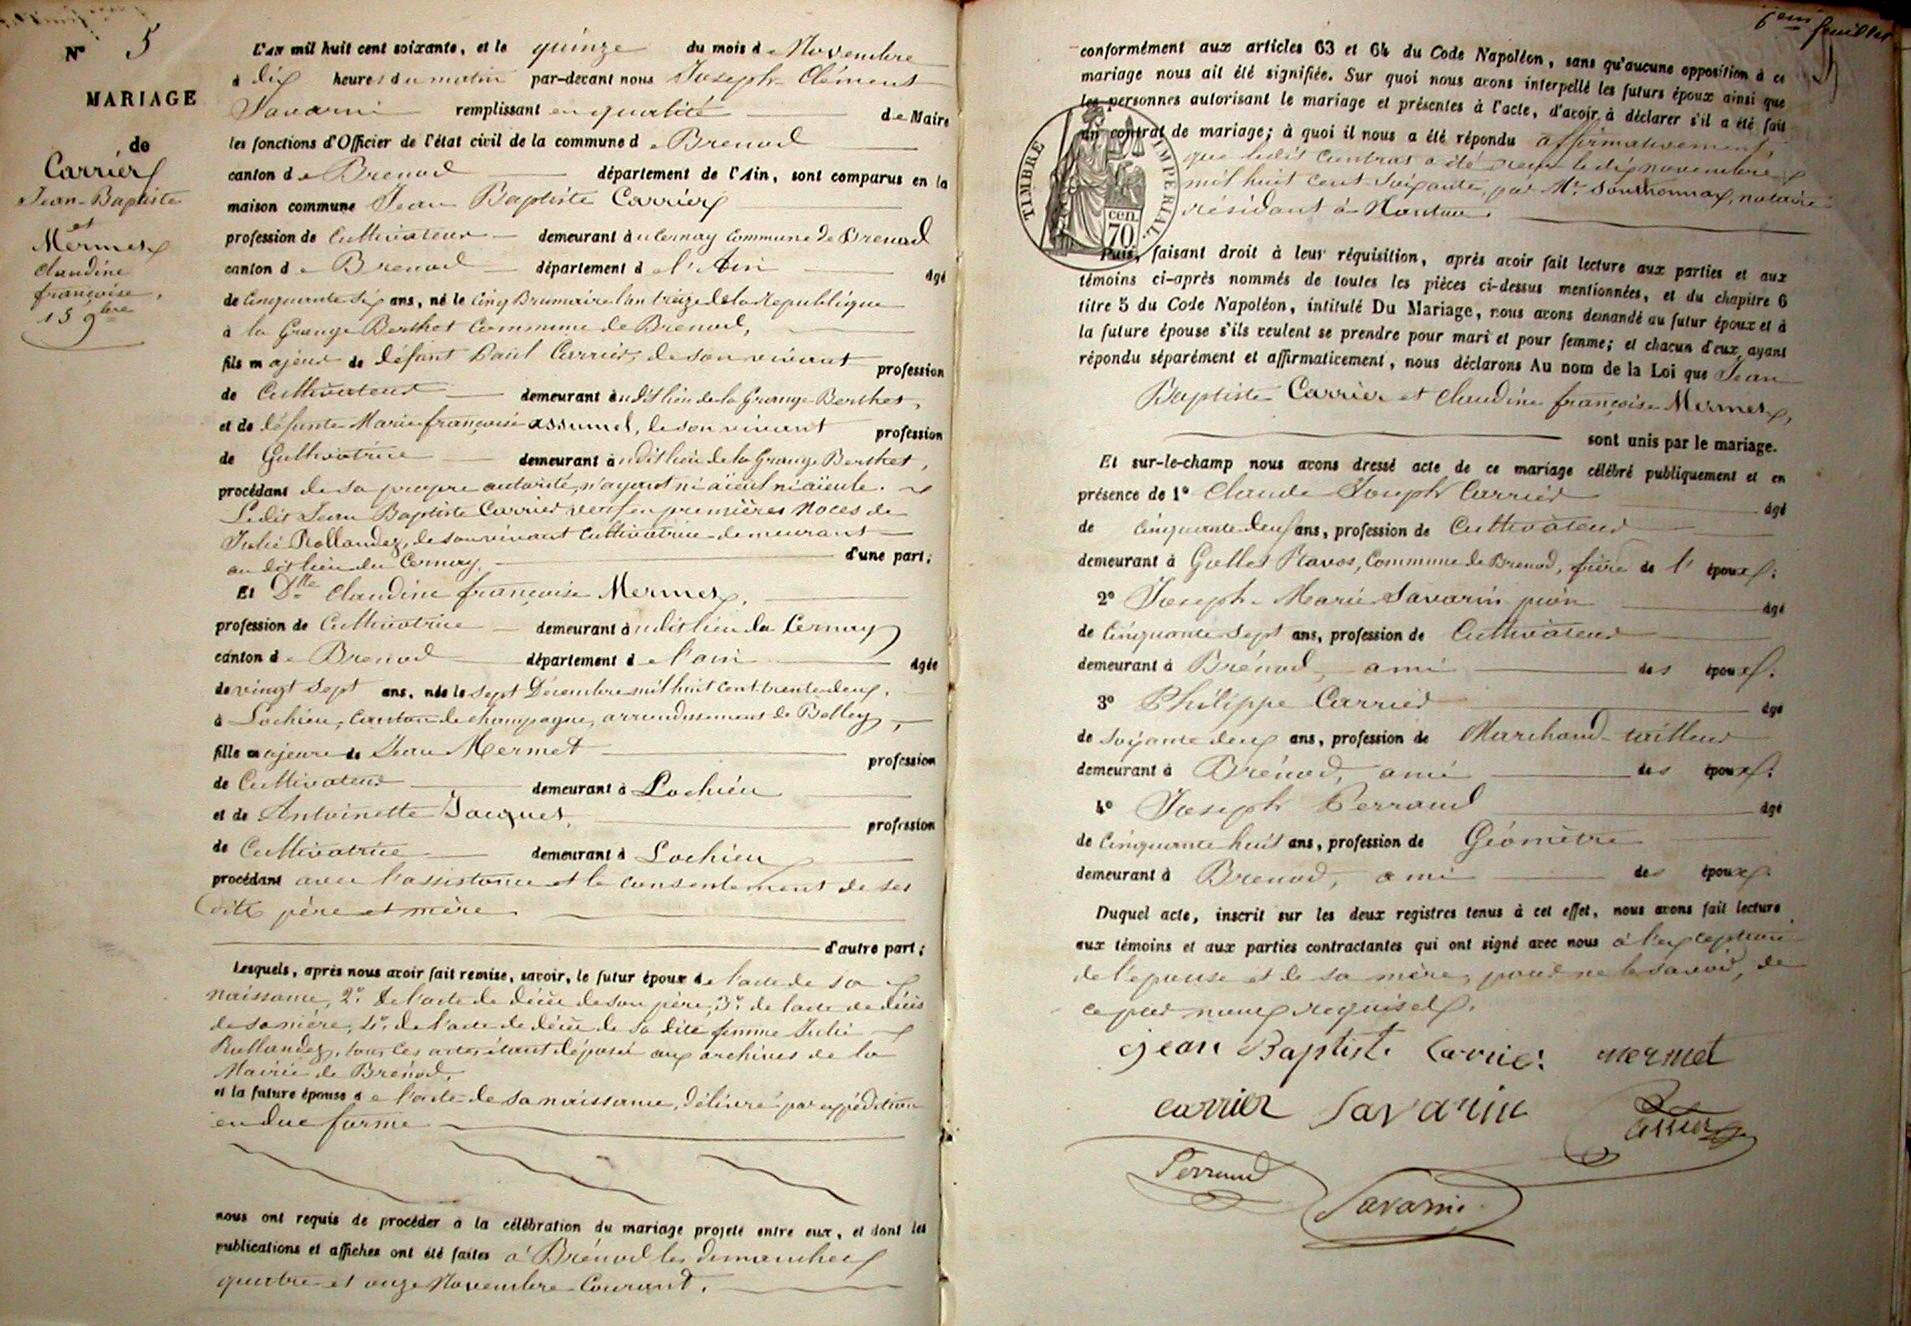 N° 5
MARIAGE
de
Carrier
Jean-Baptiste
et
Mermet
Claudine
françoise,
15 9bre
L'an mil huit cent soixante, et le quinze du mois de Novembre
à dix heures du matin par-devant nous Joseph Clément
Savarin remplissant en qualité de Maire
les fonctions d'Officier de l'état civil de la commune de Brenod
canton de Brenod département de l'Ain, sont comparus en la
maison commune Jean Baptiste Carrier
profession de Cultivateur demeurant à u Cernay commune de Brenod
canton de Brenod département de l'Ain âgé
de Cinquante Six ans, né le Cinq Brumaire l'an treize de la République
à la Grange Berthet Commune de Brenod,
fils majeur de défunt Paul Carrier, de son vivant profession
de Cultivateur demeurant au dit lieu de la Grange Berthet,
et de défunte Marie françoise Assumel, de son vivant profession
de Cultivatrice demeurant au dit lieu de la Grange Berthet,
procédant de sa propre autorité, n'ayant ni aïeul ni aïeule.
Ledit Jean Baptiste Carrier, veuf en premières noces de
Julie Rollandez, de son vivant cultivatrice demeurant
au dit lieu du Cernay. d'une part;
Et Dlle Claudine françoise Mermet,
profession de Cultivatrice demeurant au dit lieu du Cernay
canton de Brenod département de l'ain âgée
de vingt Sept ans, née le Sept Décembre mil huit cent trente deux,
à Lochieu, Canton de Champagne, arrondissement de Belley,
fille majeure de Jean Mermet profession
de Cultivateur demeurant à Lochieu
et de Antoinette Jacquet, profession
de Cultivatrice demeurant à Lochieu
procédant avec l'assistance et le consentement de ses
dits père et mère
d'autre part;
Lesquels, après nous avoir fait remise, savoir, le futur époux de l'acte de sa
naissance, 2° de l'acte de décès de son père, 3° de l'acte de décès
de sa mère, 4° de l'acte de décès de sa dite femme Julie
Rollandez, tous ces actes étant déposés aux archives de la
Mairie de Brénod,
et la future épouse de l'acte de sa naissance, délivré par expédition
en due forme
nous ont requis de procéder à la célébration du mariage projeté entre eux, et dont les
publications et affiches ont été faites à Brénod les dimanches
quatre et onze Novembre Courant.
6eme feuillet
conformément aux articles 63 et 64 du Code Napoléon, sans qu'aucune opposition à ce
mariage nous ait été signifiée. Sur quoi nous avons interpellé les futurs époux ainsi que
les personnes autorisant le mariage et présentes à l'acte, d'avoir à déclarer s'il a été fait
un contrat de mariage; à quoi il nous a été répondu affirmativement,
que ledit Contrat a été reçu le dix novembre
mil huit cent soixante, par Mr Southonnax, notaire
résidant à Nantua.
TIMBRE IMPERIAL.
70 cen.
Puis, faisant droit à leur réquisition, après avoir fait lecture aux parties et aux
témoins ci-après nommés de toutes les pièces ci-dessus mentionnées, et du chapitre 6
titre 5 du Code Napoléon, intitulé Du Mariage, nous avons demandé au futur époux et à
la future épouse s'ils veulent se prendre pour mari et pour femme; et chacun d'eux ayant
répondu séparément et affirmativement, nous déclarons Au nom de la Loi que Jean
Baptiste Carrier et Claudine françoise Mermet,
sont unis par le mariage.
Et sur-le-champ nous avons dressé acte de ce mariage célébré publiquement et en
présence de 1° Claude Joseph Carrier âgé
de Cinquante deux ans, profession de Cultivateur
demeurant à Gullet Ravos, Commune de Brenod, frère de l' époux;
2° Joseph Marie Savarin pion âgé
de Cinquante Sept ans, profession de Cultivateur
demeurant à Brénod, ami des époux;
3° Philippe Carrier âgé
de Soixante deux ans, profession de Marchand-tailleur
demeurant à Brénod, ami des époux;
4° Joseph Perraud âgé
de Cinquante huit ans, profession de Géomètre
demeurant à Brenod, ami des époux.
Duquel acte, inscrit sur les deux registres tenus à cet effet, nous avons fait lecture
aux témoins et aux parties contractantes qui ont signé avec nous à l'exception
de l'épouse et de sa mère, pour ne le savoir, de
ce par nous requises.
jean Baptiste Carrier mermet
carrier Savarin
Perraud Savarin